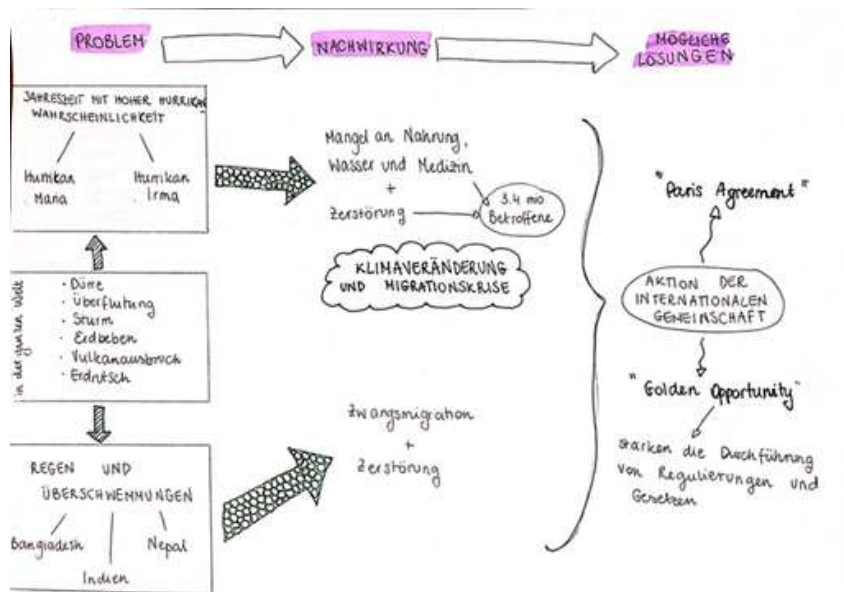 PROBLEM
NACHWIRKUNG
MÖGLICHE
LÖSUNGEN
JAHRESZEIT MIT HOHER HURRIKAN
WAHRSCHEINLICHKEIT
Hurrikan
Maria
Hurrikan
Irma
in der ganzen Welt
· Dürre
· Überflutung
· Sturm
· Erdbeben
· Vulkanausbruch
· Erdrutsch
REGEN UND
ÜBERSCHWEMMUNGEN
Bangladesh
Indien
Nepal
Mangel an Nahrung,
Wasser und Medizin
+
Zerstörung
3.4 mio
Betroffene
KLIMAVERÄNDERUNG
UND MIGRATIONSKRISE
Zwangsmigration
+
Zerstörung
"Paris Agreement"
AKTION DER
INTERNATIONALEN
GEMEINSCHAFT
"Golden Opportunity"
stärken die Durchführung
von Regulierungen und
Gesetzen